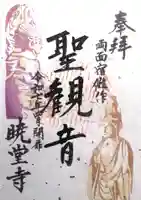 奉拝
両面宿儺作
聖観音
暁堂寺